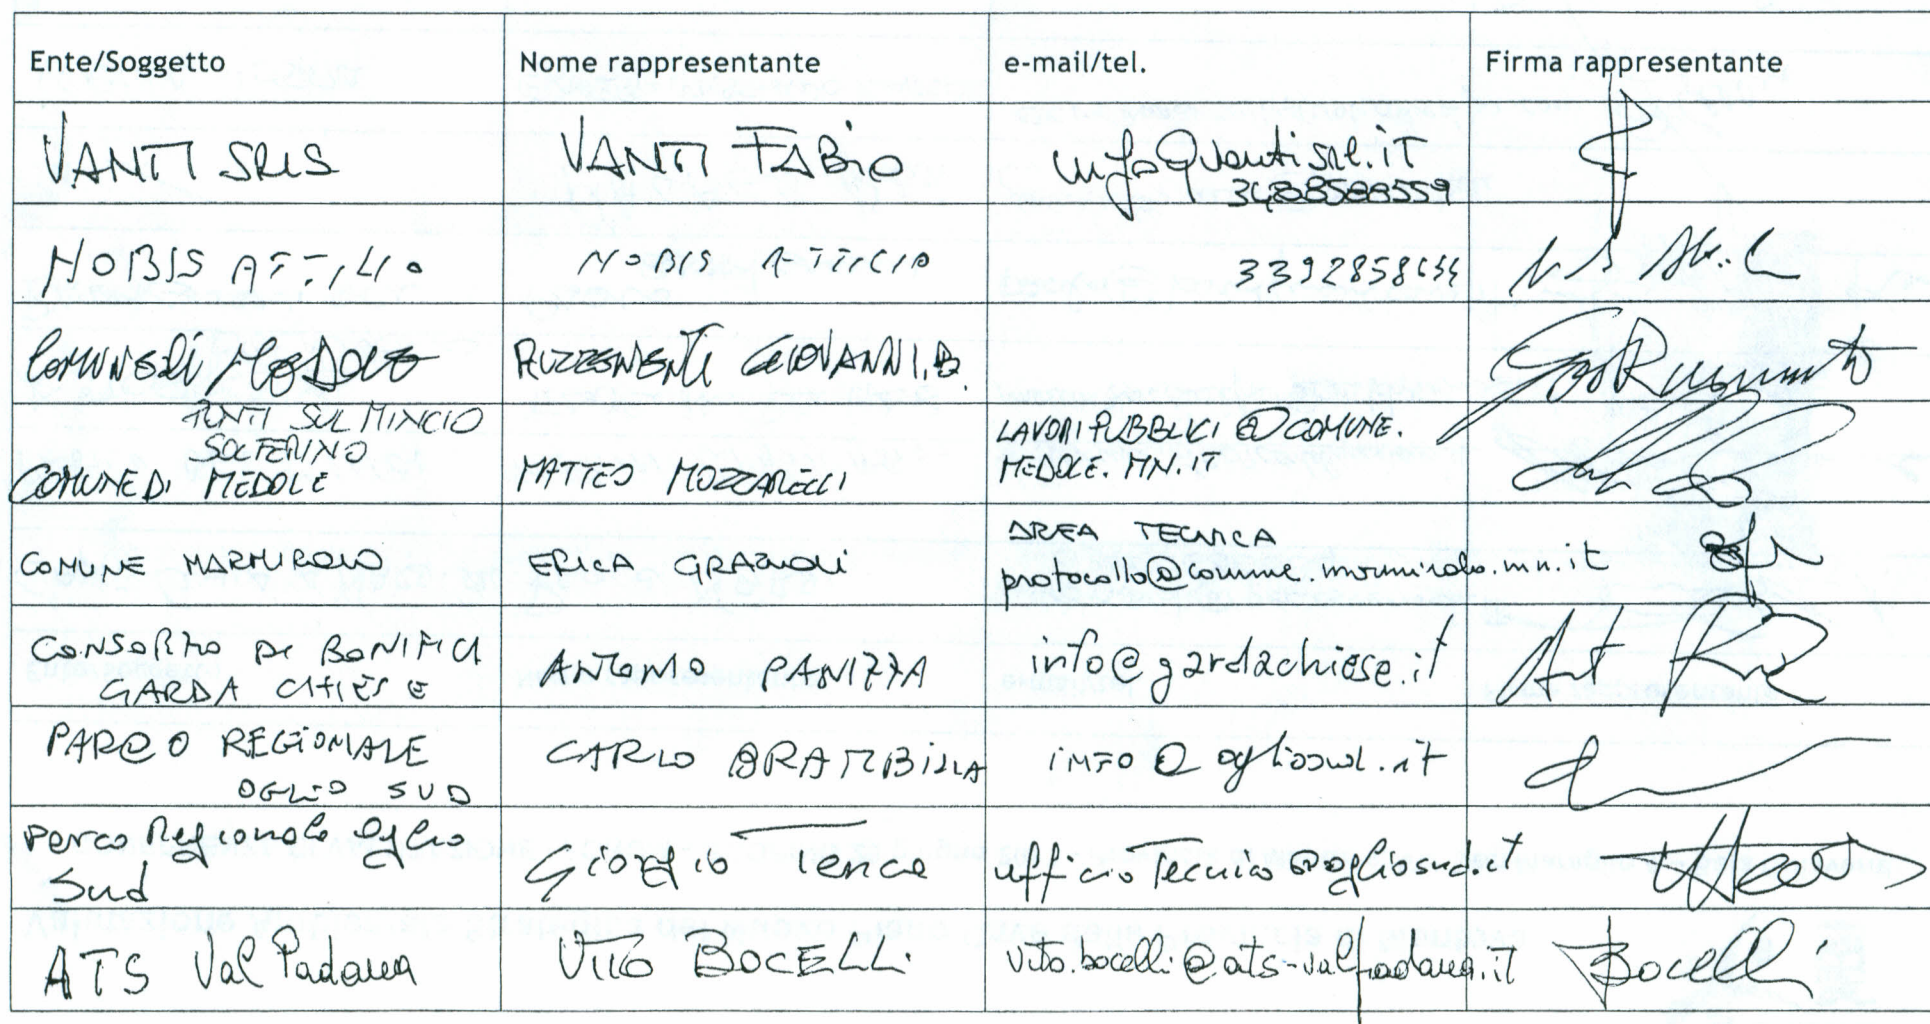 Ente/Soggetto Nome rappresentante e-mail/tel. Firma rappresentante
VANTI SRLS VANTI FABIO info@vantisrl.it
NOBIS ATTILIO NOBIS ATTILIO
COMUNE di MEDOLE RUZZENENTI GIOVANNI B.
PONTI SUL MINCIO
SOLFERINO
COMUNE DI MEDOLE MATTEO MOZZARELLI LAVORI PUBBLICI @ COMUNE.
MEDOLE.MN.IT
COMUNE MARMIROLO ERICA GRAZIOLI AREA TECNICA
protocollo@comune.marmirolo.mn.it
CONSORZIO DI BONIFICA
GARDA CHIESE ANTONIO PANIZZA info@gardachiese.it
PARCO REGIONALE
OGLIO SUD CARLO BRAMBILLA INFO @ ogliosud.it
Parco Regionale Oglio
Sud Giorgio ufficioTecnico@ogliosud.it
ATS Val Padana VITO BOCELLI vito.bocelli@ats-valpadana.it Bocelli